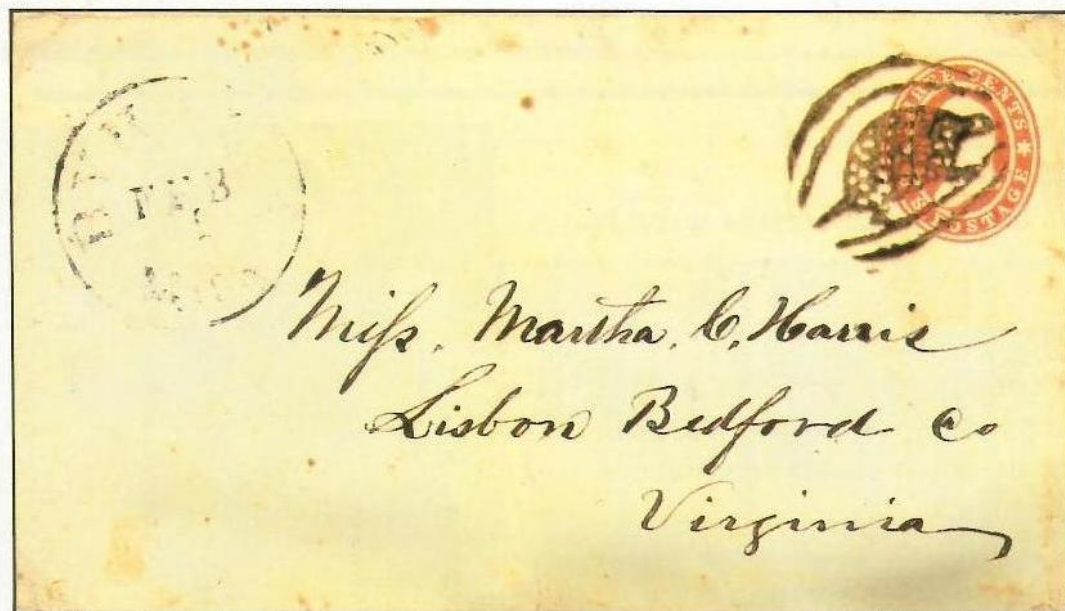 FEB
1
THREE CENTS * POSTAGE
Miſs. Martha. C. Harris
Lisbon Bedford Co
Virginia